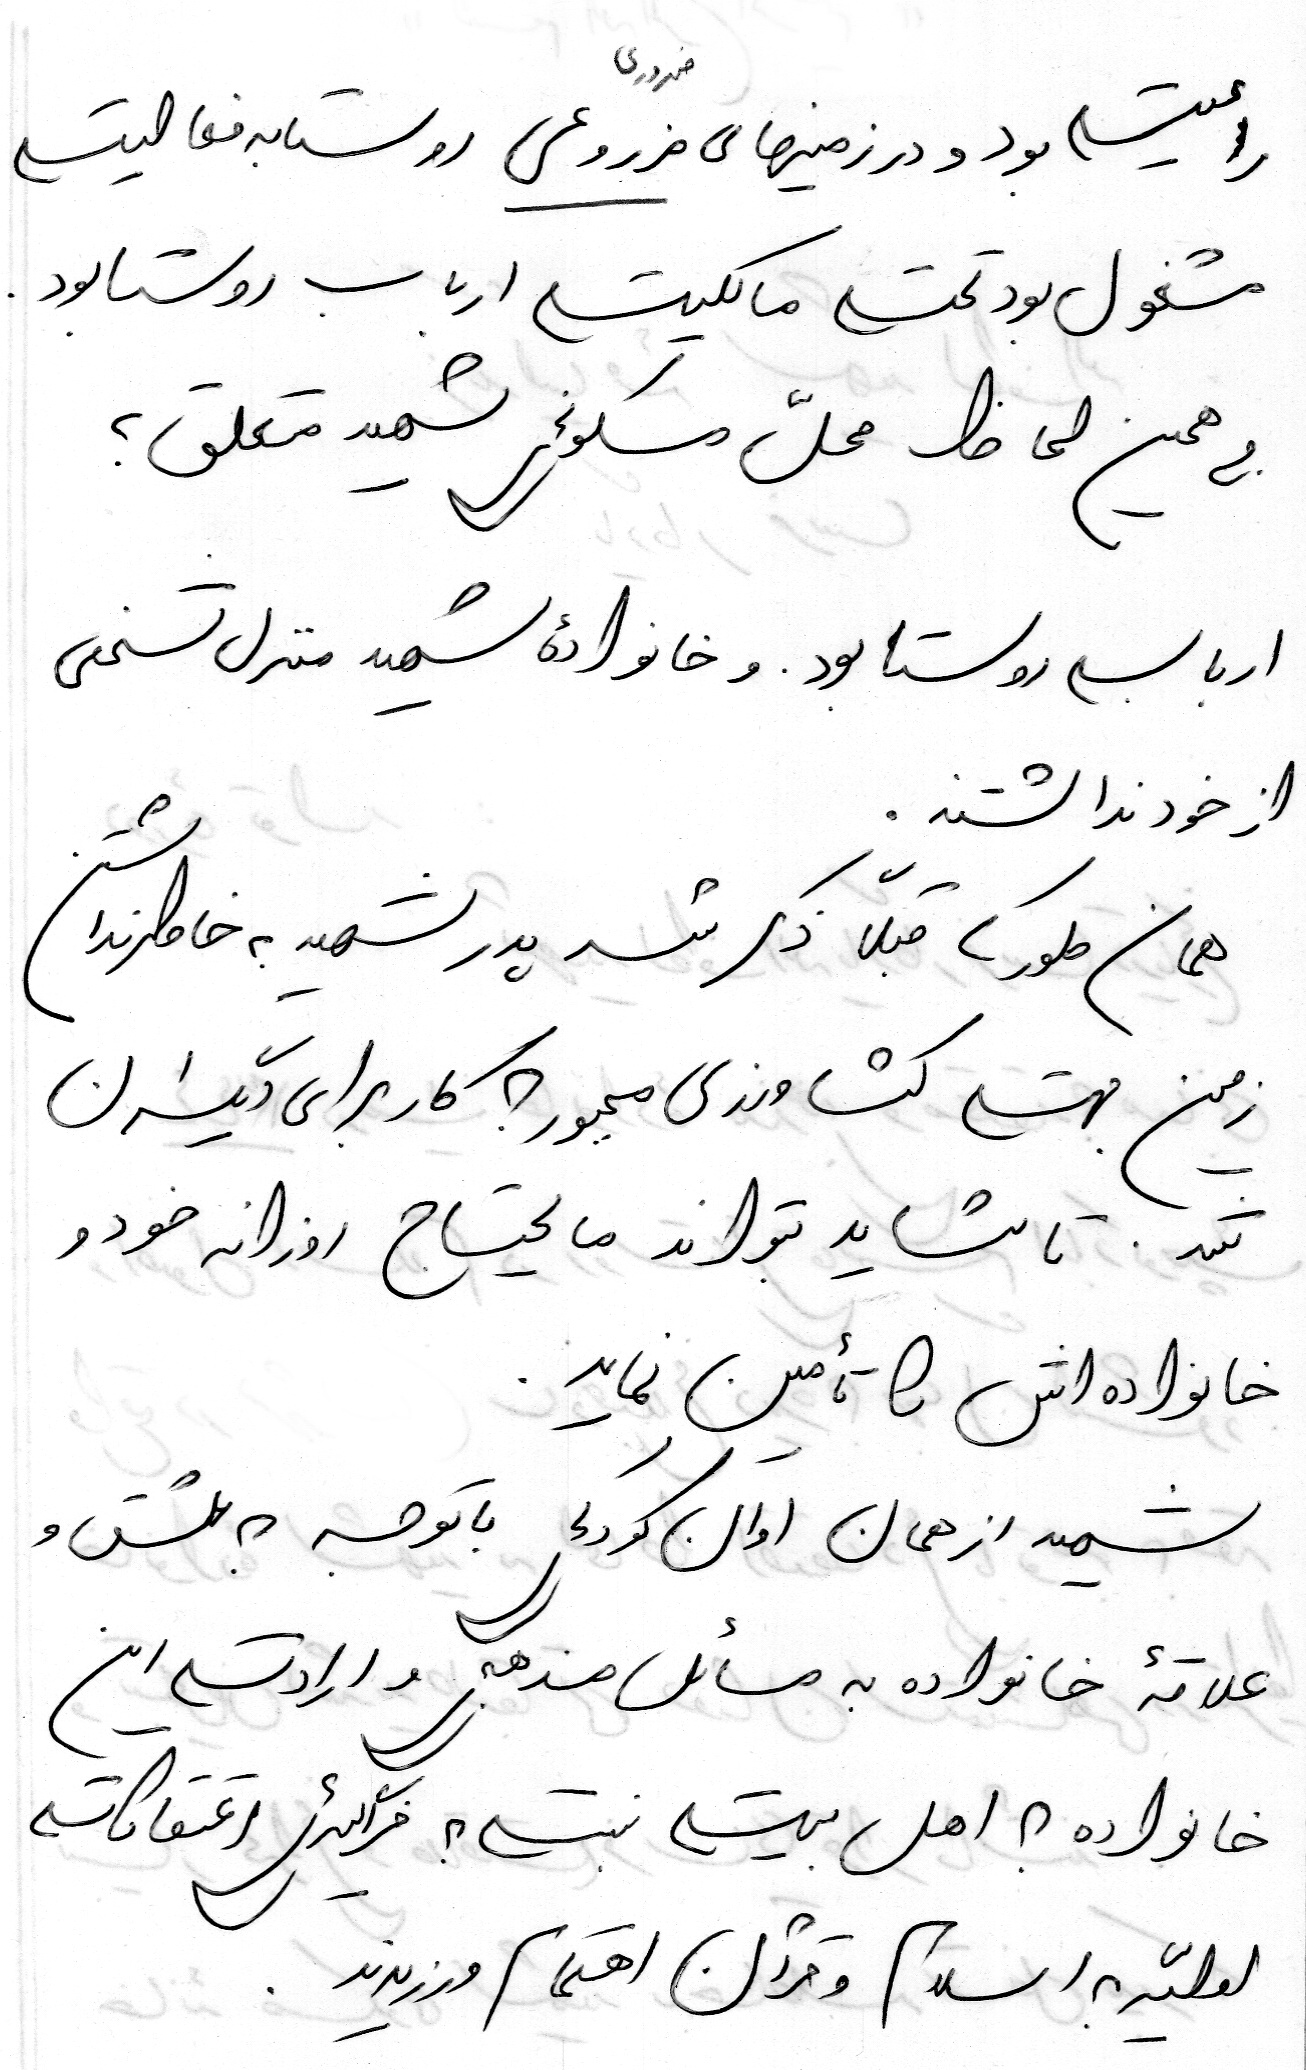 ضروری
راعیت بود و در زمینهای مزروعی روستا به فعالیت
مشغول بود تحت مالکیت ارباب روستا بود.
به همین لحاظ محلّ مسکونی شهید متعلق به
ارباب روستا بود. و خانوادهٔ شهید منزل شخصی
از خود نداشتند.
همان طور که قبلاً ذکر شد پدر شهید به خاطر نداشتن
زمین جهت کشاورزی مجبور به کار برای دیگران
شد. تا شاید بتواند مایحتاج روزانه خود و
خانواده اش را تأمین نماید.
شهید از همان اوان کودکی با توجه به عشق و
علاقهٔ خانواده به مسائل مذهبی و ارادت این
خانواده به اهل بیت نسبت به فراگیری اعتقادات
اولیّه اسلام و قرآن اهتمام ورزیدند.